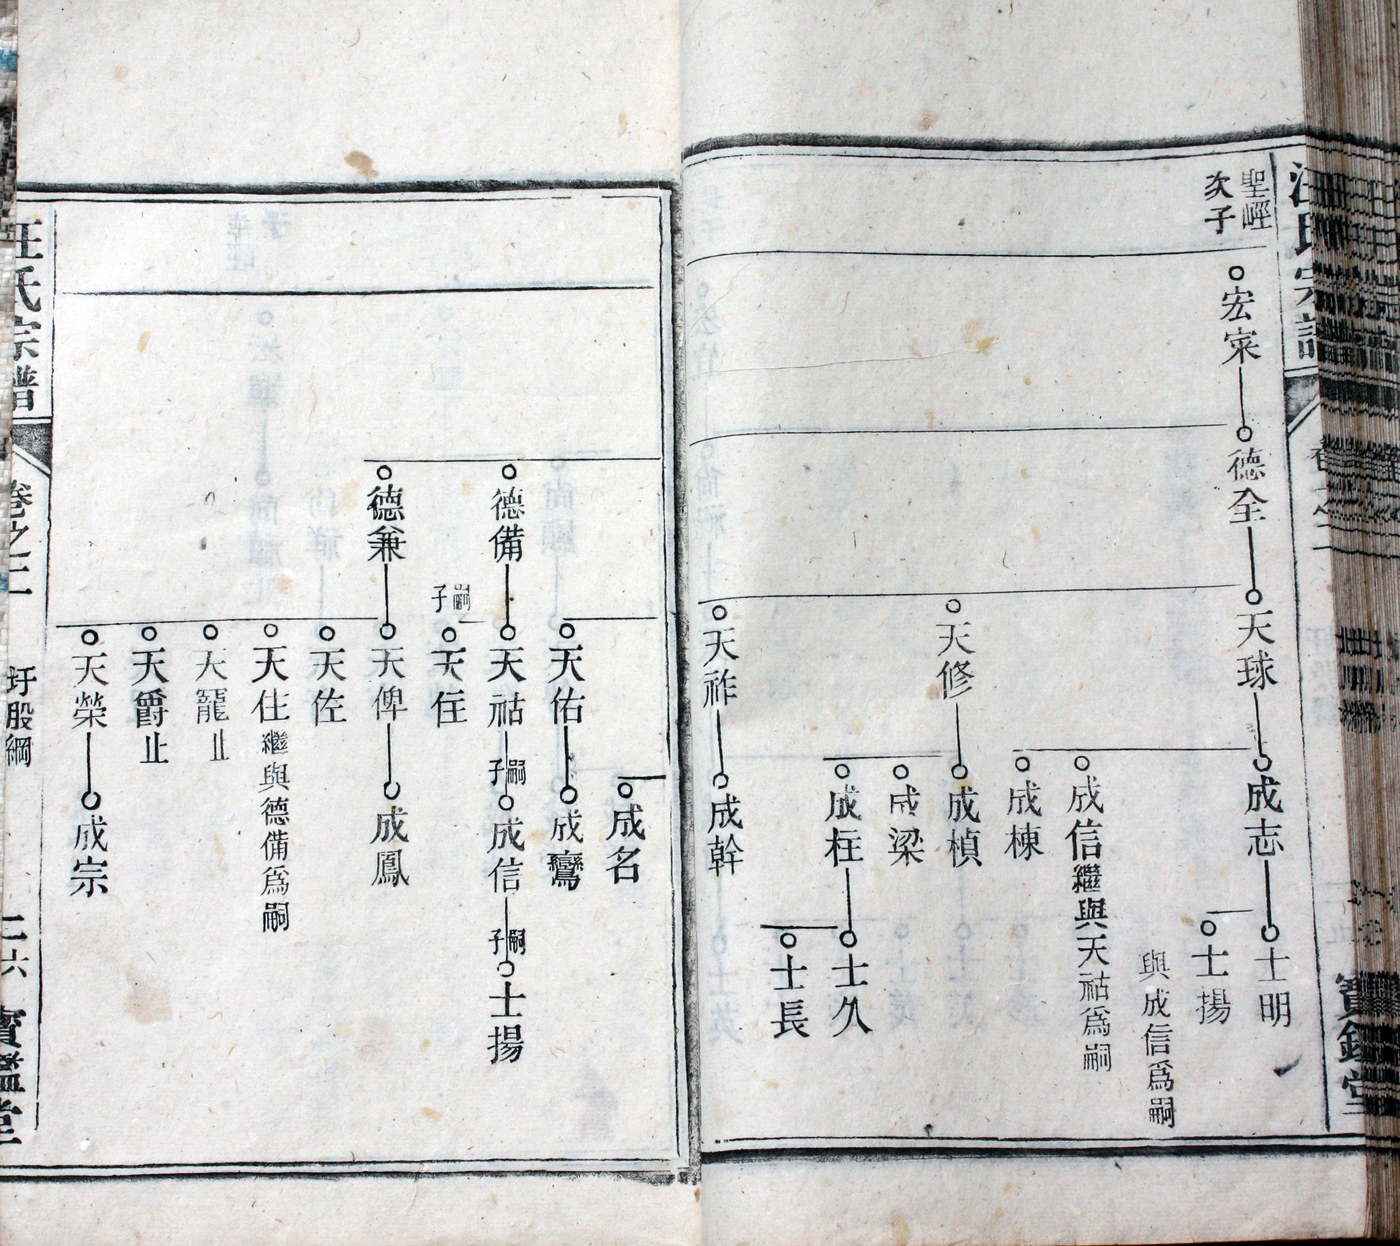 汪氏宗譜
卷之二
寶鑑堂
聖巠
次子
宏寀
德全
天球
成志
士明
士揚
與成信為嗣
成信繼與天祜為嗣
成棟
天修
成楨
成梁
成柱
士久
士長
天祚
成幹
成名
天佑
成鸞
德備
天祜
嗣子
成信
嗣子
士揚
嗣子
天任
德兼
天俾
成鳳
天佐
天任繼與德備為嗣
天寵止
天爵止
天榮
成宗
汪氏宗譜
卷之二
圩股綱
二六
寶鑑堂